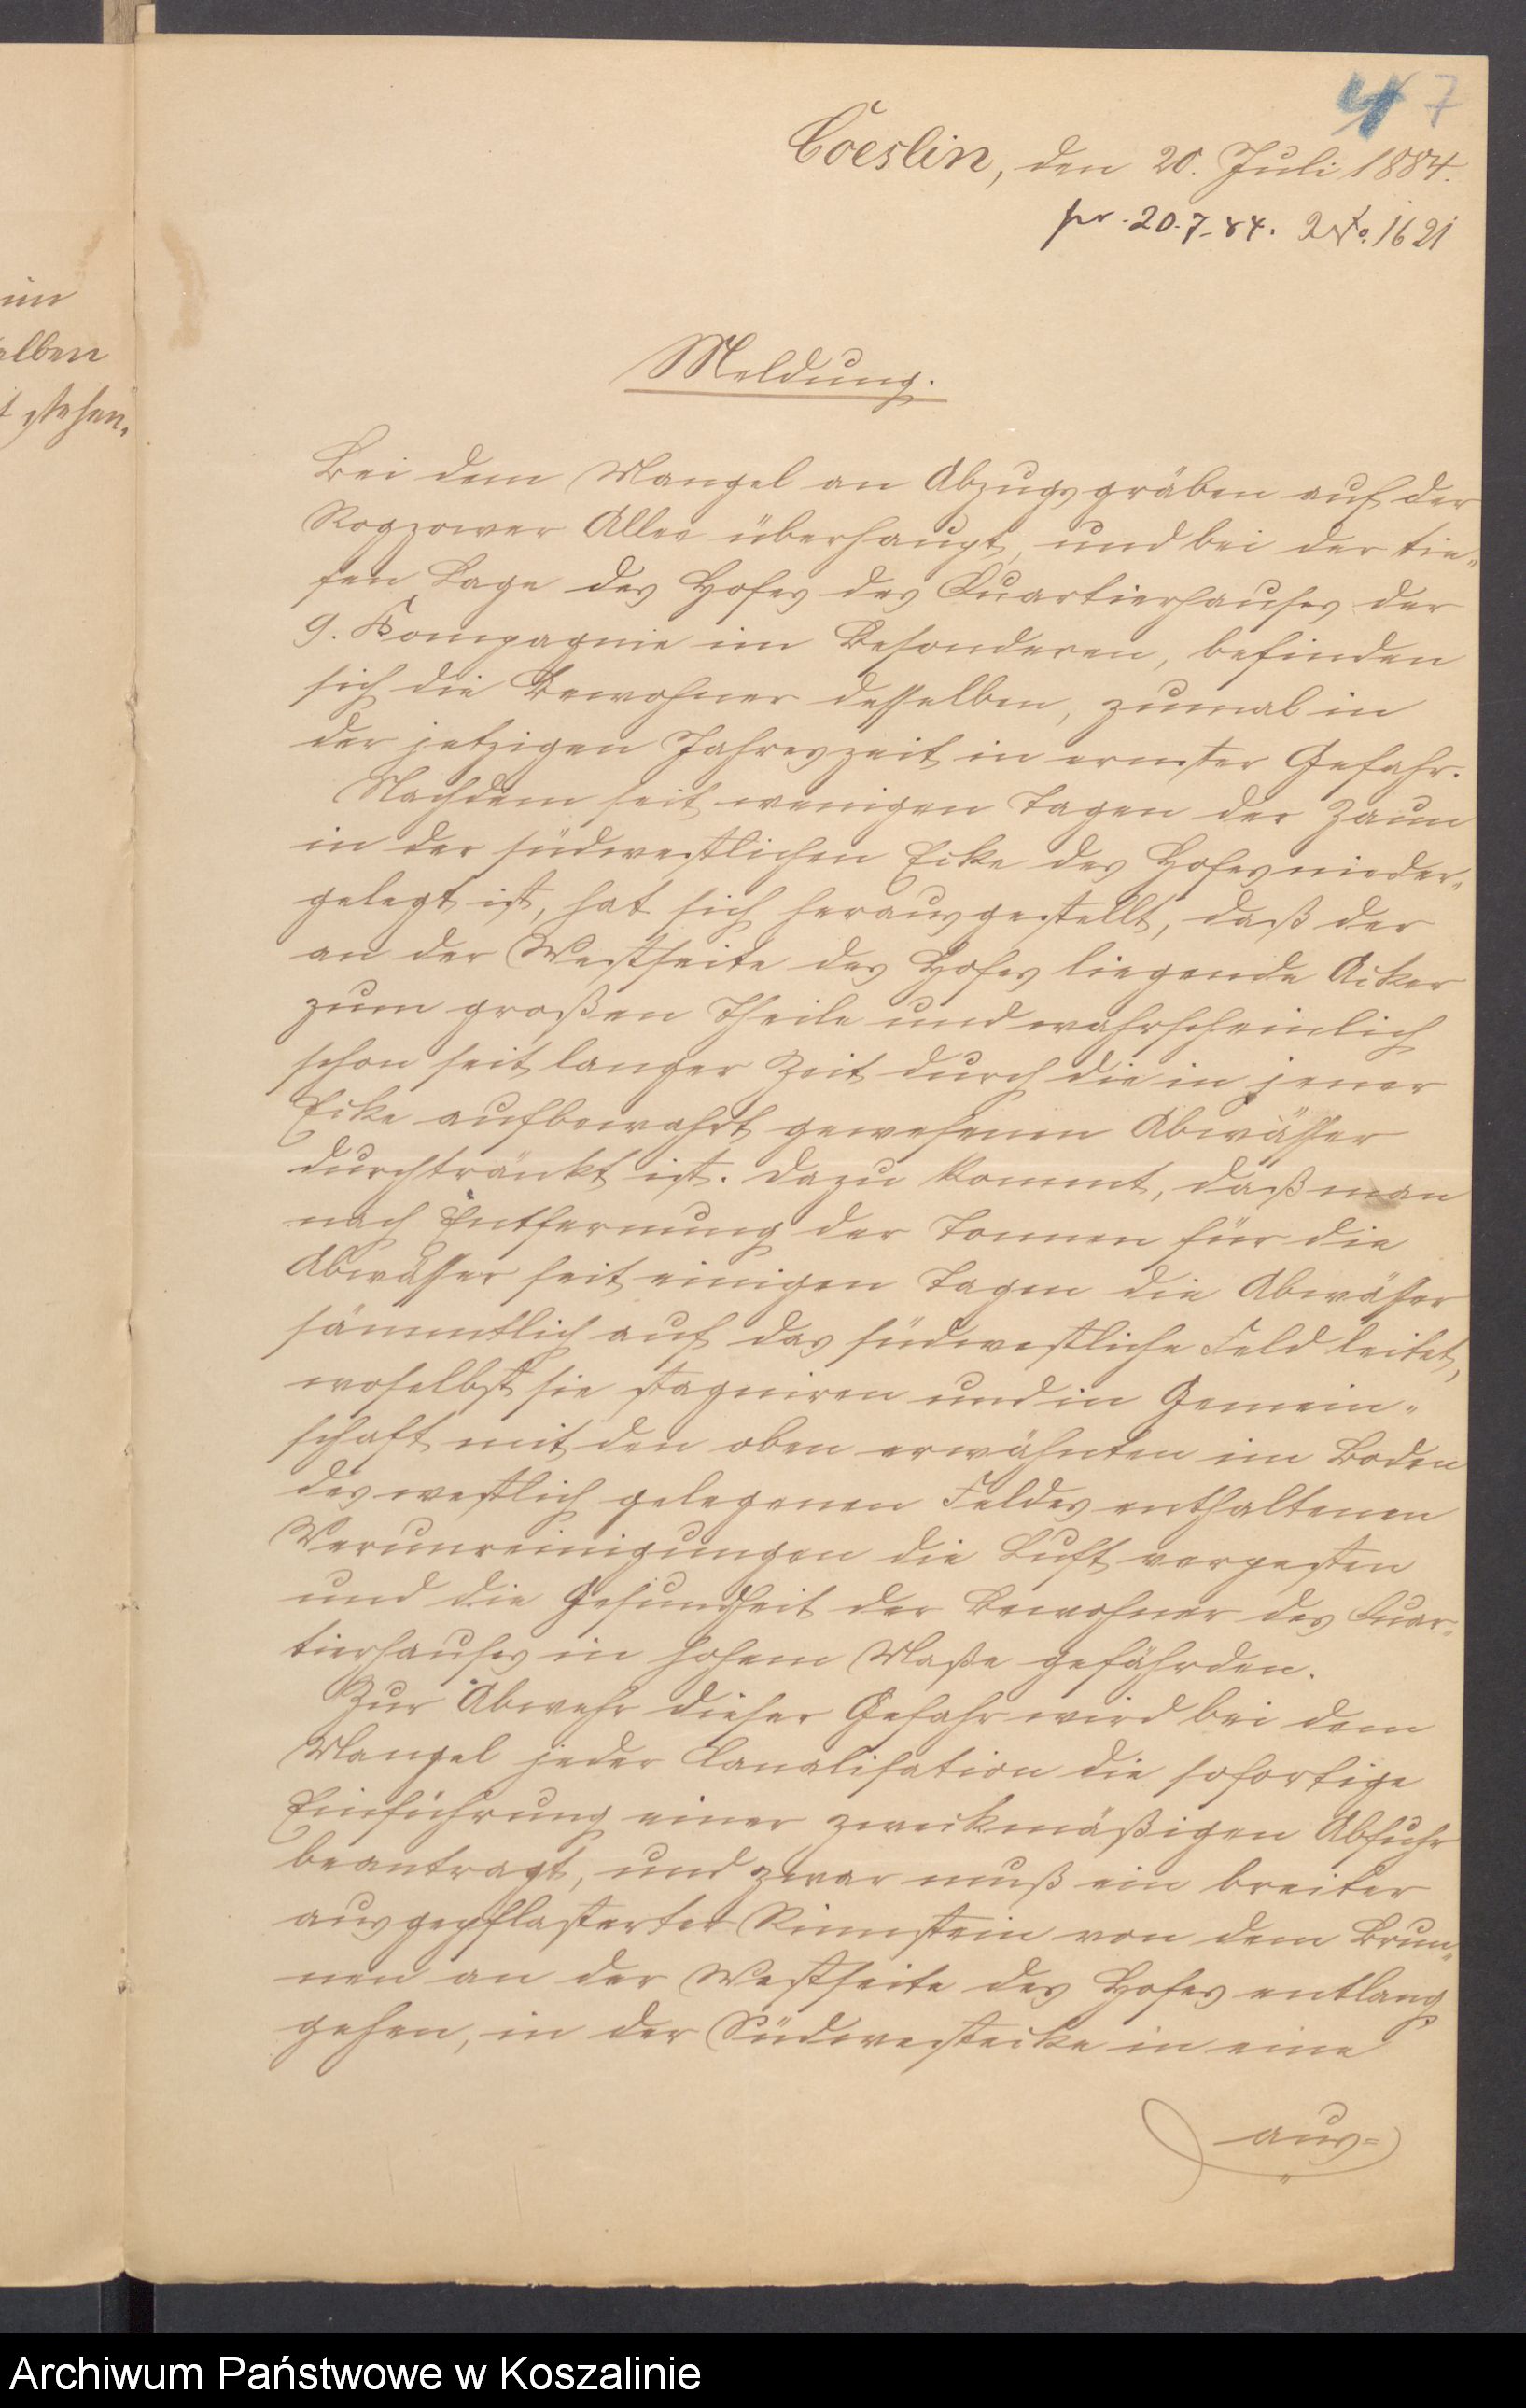 4 7
Coeslin, den 20. Juli 1884.
pr. 20.7.84. No. 1621
Meldung.
Bei dem Mangel an Abzugsgräben auf der
Rogzower Allee überhaupt, und bei der tie-
fen Lage des Hofes des Quartierhauses der
9. Kompagnie im Besonderen, befinden
sich die Bewohner desselben, zumal in
der jetzigen Jahreszeit in ernster Gefahr.
Nachdem seit wenigen Tagen der Zaun
in der südwestlichen Ecke des Hofes nieder-
gelegt ist, hat sich herausgestellt, daß der
an der Westseite des Hofes liegende Acker
zum großen Theile und wahrscheinlich
schon seit langer Zeit durch die in jener
Ecke aufbewahrt gewesenen Abwässer
durchtränkt ist. Dazu kommt, daß man
nach Entfernung der Tonnen für die
Abwässer seit einigen Tagen die Abwässer
sämmtlich auf das südwestliche Feld leitet,
woselbst sie stagniren und in Gemein-
schaft mit den oben erwähnten im Boden
des westlich gelegenen Feldes enthaltenen
Verunreinigungen die Luft verpesten
und die Gesundheit der Bewohner des Quar-
tierhauses in hohem Maße gefährden.
Zur Abwehr dieser Gefahr wird bei dem
Mangel jeder Canalisation die sofortige
Einführung einer zweckmäßigen Abfuhr
beantragt, und zwar muß ein breiter
ausgepflasterter Rinnstein von dem Brun-
nen an der Westseite des Hofes entlang
gehen, in der Südwestecke in eine
aus=
im
elben
t stehen.
Archiwum Państwowe w Koszalinie